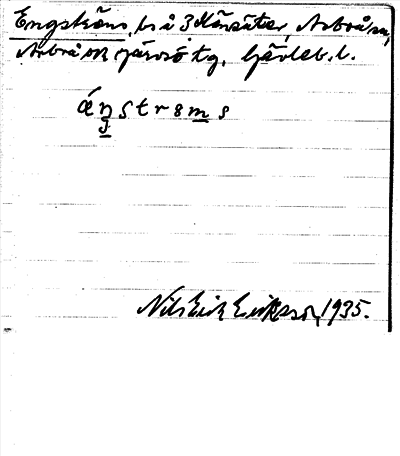 Engströms, hs å 3 Hänsätter, Arbrå sn,
Arbrå ok Järvsö tg, Gävleb. l.
áŋstrɵms
g
Nils Erik Eriksson, 1935.